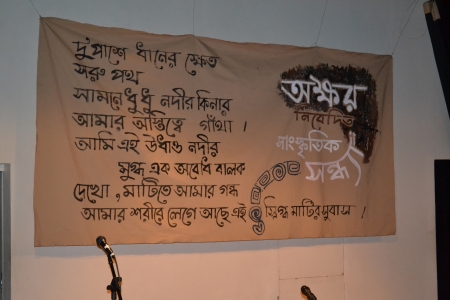 দু'পাশে ধানের ক্ষেত
সরু পথ
সামনে ধুধু নদীর কিনার
আমার অস্তিত্বে গাঁথা ।
আমি এই উধাও নদীর
মুগ্ধ এক অবোধ বালক
দেখো, মাটিতে আমার গন্ধ
আমার শরীরে লেগে আছে এই স্নিগ্ধ মাটির সুবাস ।
অক্ষর
নিবেদিত
সাংস্কৃতিক
সন্ধ্যা